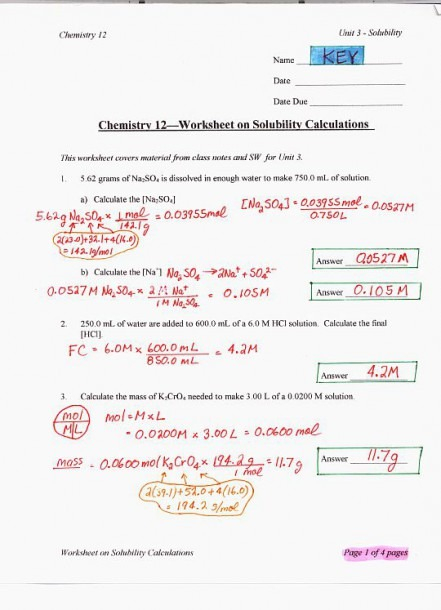 Chemistry 12 Unit 3 - Solubility
Name KEY
Date
Date Due
Chemistry 12—Worksheet on Solubility Calculations
This worksheet covers material from class notes and SW for Unit 3.
1. 5.62 grams of Na₂SO₄ is dissolved in enough water to make 750.0 mL of solution.
a) Calculate the [Na₂SO₄]
[Na₂SO₄] = 0.03955mol = 0.0527M
0.750L
5.62g Na₂SO₄ × 1 mol = 0.03955mol
142.1g
2(23.0)+32.1+4(16.0)
= 142.1g/mol
Answer 0.0527M
b) Calculate the [Na⁺] Na₂SO₄ → 2Na⁺ + SO₄²⁻
0.0527M Na₂SO₄ × 2M Na⁺ = 0.105M
1M Na₂SO₄
Answer 0.105M
2. 250.0 mL of water are added to 600.0 mL of a 6.0 M HCl solution. Calculate the final
[HCl].
FC = 6.0M × 600.0mL = 4.2M
850.0mL
Answer 4.2M
3. Calculate the mass of K₂CrO₄ needed to make 3.00 L of a 0.0200 M solution.
mol
M|L
mol = M×L
= 0.0200M × 3.00L = 0.0600mol
mass = 0.0600mol K₂CrO₄ × 194.2g = 11.7g
1 mol
Answer 11.7g
2(39.1)+52.0+4(16.0)
= 194.2g/mol
Worksheet on Solubility Calculations Page 1 of 4 pages